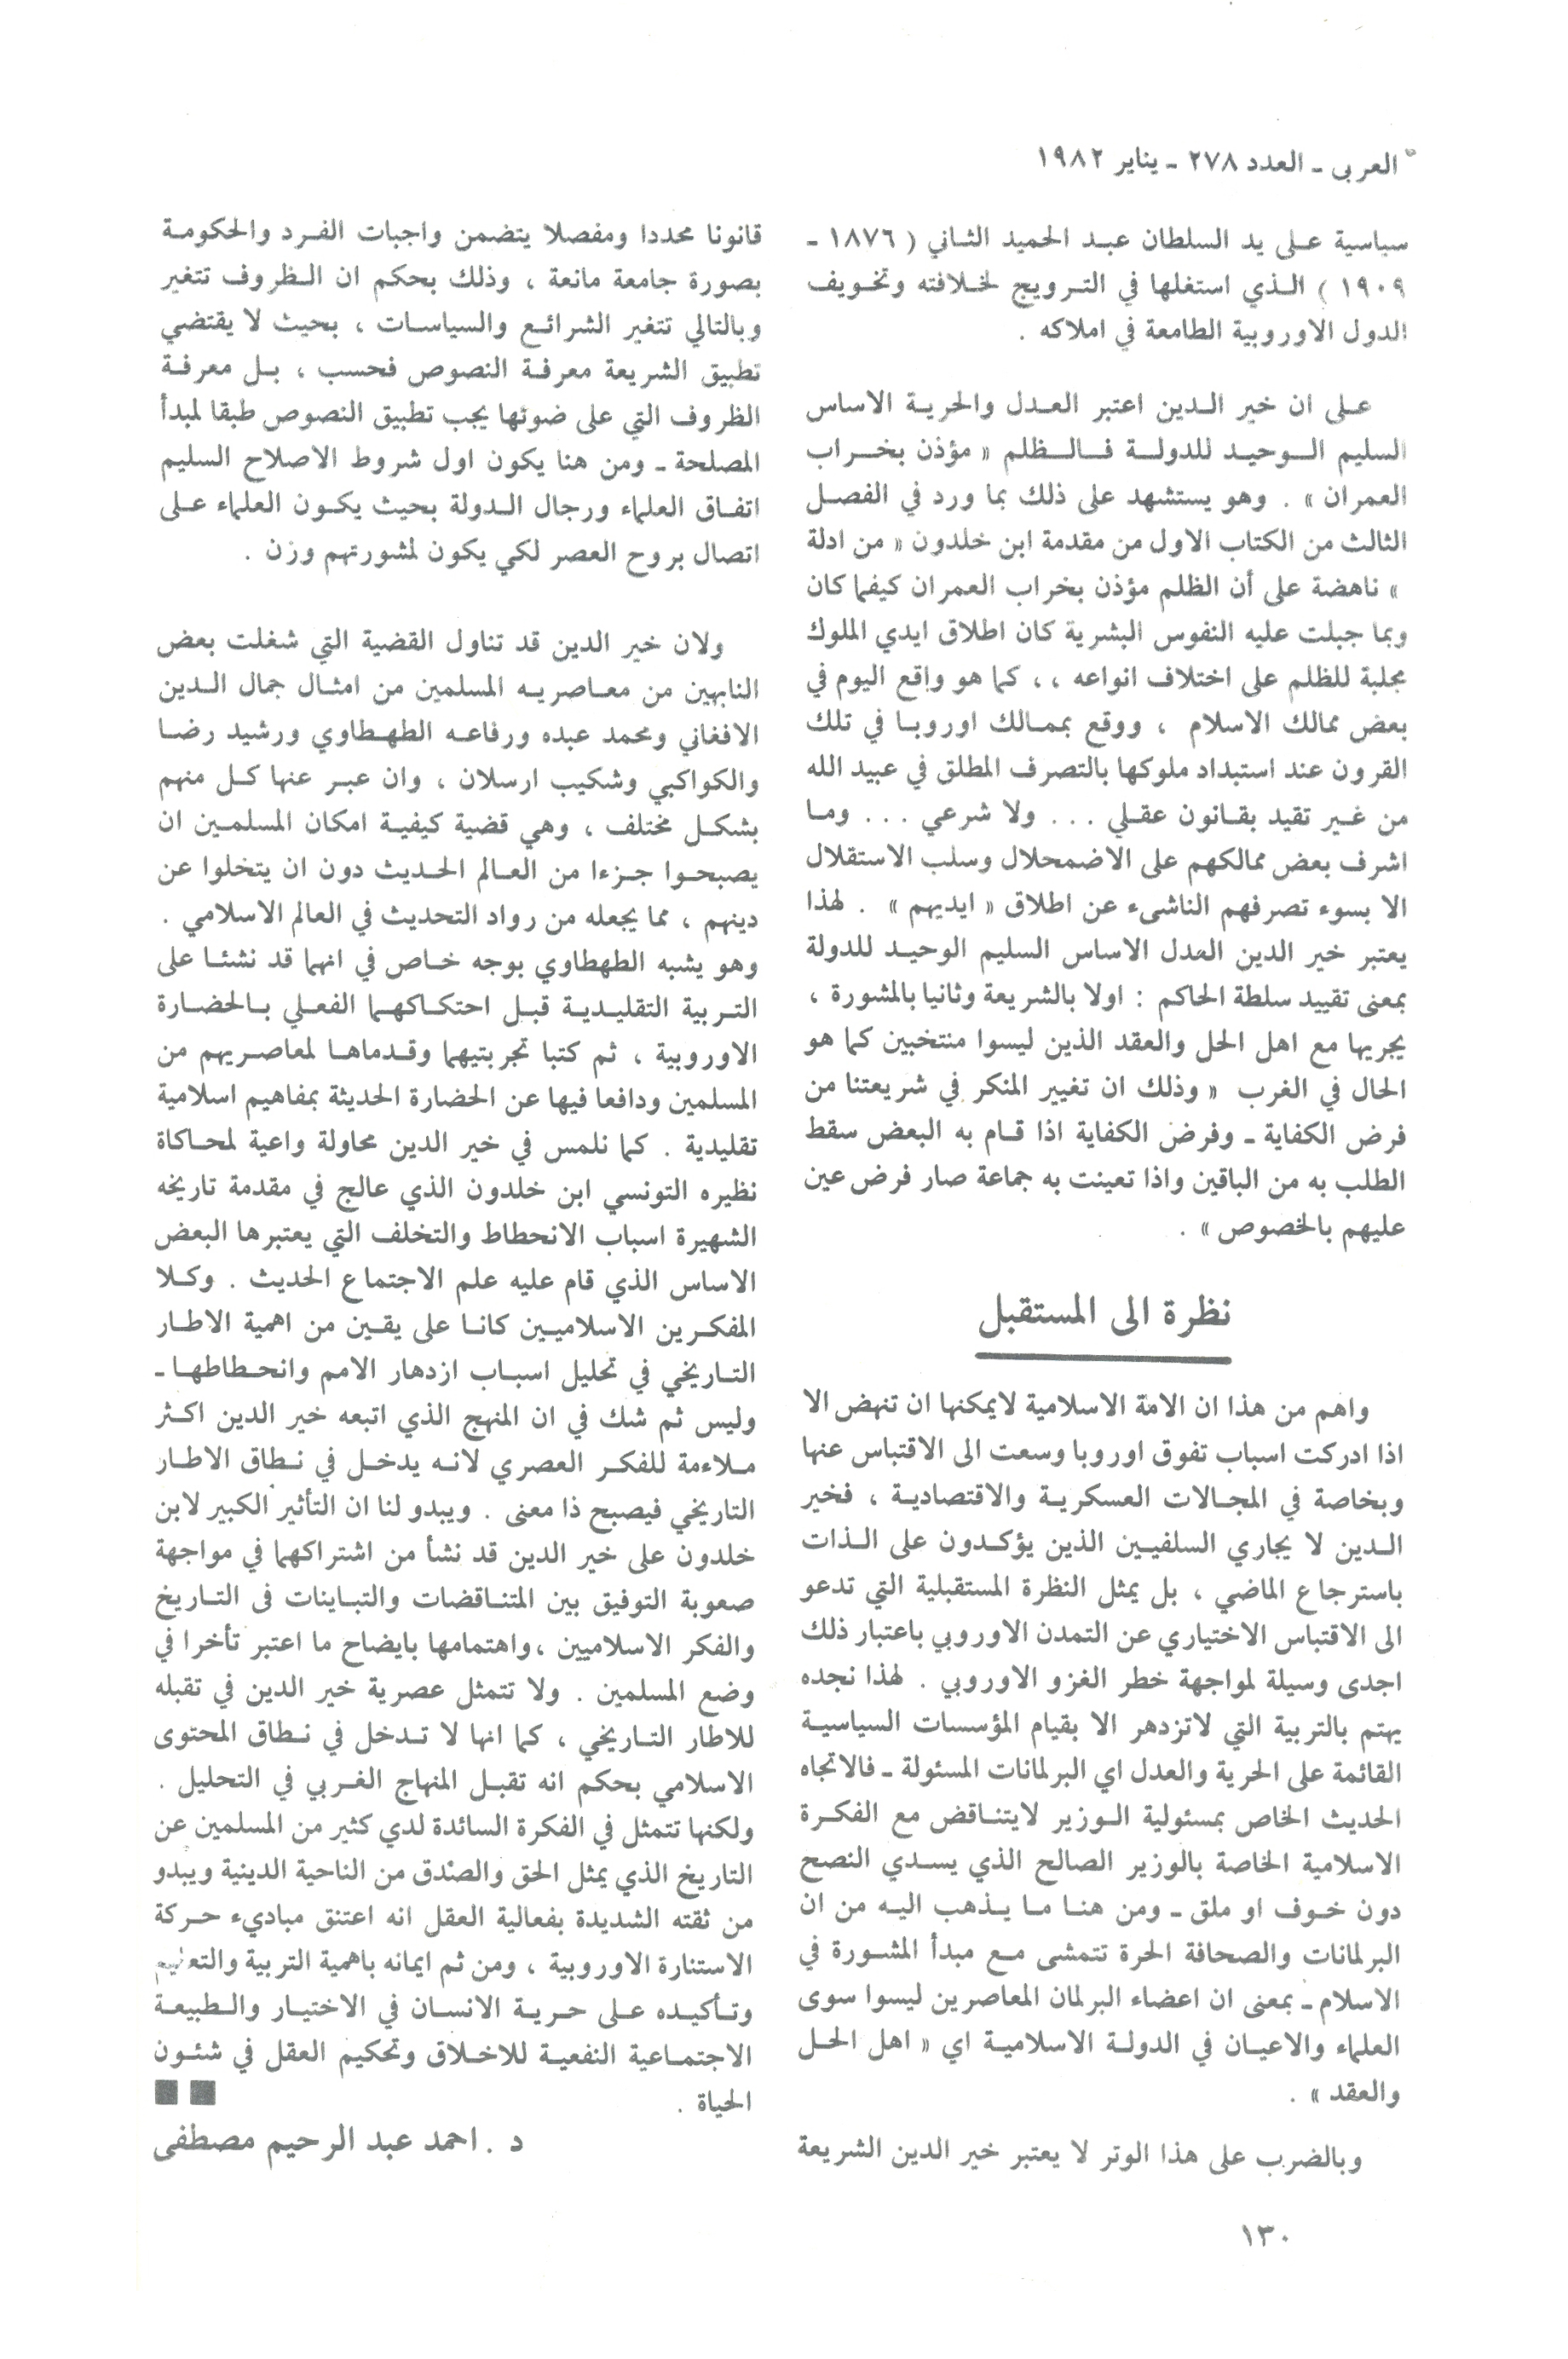 العربي ـ العدد ٢٧٨ ـ يناير ١٩٨٢
سياسية على يد السلطان عبد الحميد الثاني ( ١٨٧٦ ـ
١٩٠٩ ) الذي استغلها في الترويج لخلافته وتخويف
الدول الاوروبية الطامعة في املاكه .
على ان خير الدين اعتبر العدل والحرية الاساس
السليم الوحيد للدولة فالظلم « مؤذن بخراب
العمران » . وهو يستشهد على ذلك بما ورد في الفصل
الثالث من الكتاب الاول من مقدمة ابن خلدون « من ادلة
» ناهضة على أن الظلم مؤذن بخراب العمران كيفما كان
وبما جبلت عليه النفوس البشرية كان اطلاق ايدي الملوك
مجلبة للظلم على اختلاف انواعه ،، كما هو واقع اليوم في
بعض ممالك الاسلام ، ووقع بممالك اوروبا في تلك
القرون عند استبداد ملوكها بالتصرف المطلق في عبيد الله
من غير تقيد بقانون عقلي ... ولا شرعي ... وما
اشرف بعض ممالكهم على الاضمحلال وسلب الاستقلال
الا بسوء تصرفهم الناشىء عن اطلاق « ايديهم » . لهذا
يعتبر خير الدين العدل الاساس السليم الوحيد للدولة
بمعنى تقييد سلطة الحاكم : اولا بالشريعة وثانيا بالمشورة ،
يجريها مع اهل الحل والعقد الذين ليسوا منتخبين كما هو
الحال في الغرب « وذلك ان تغيير المنكر في شريعتنا من
فرض الكفاية ـ وفرض الكفاية اذا قام به البعض سقط
الطلب به من الباقين واذا تعينت به جماعة صار فرض عين
عليهم بالخصوص » .
نظرة الى المستقبل
واهم من هذا ان الامة الاسلامية لايمكنها ان تنهض الا
اذا ادركت اسباب تفوق اوروبا وسعت الى الاقتباس عنها
وبخاصة في المجالات العسكرية والاقتصادية ، فخير
الدين لا يجاري السلفيين الذين يؤكدون على الذات
باسترجاع الماضي ، بل يمثل النظرة المستقبلية التي تدعو
الى الاقتباس الاختياري عن التمدن الاوروبي باعتبار ذلك
اجدى وسيلة لمواجهة خطر الغزو الاوروبي . لهذا نجده
يهتم بالتربية التي لاتزدهر الا بقيام المؤسسات السياسية
القائمة على الحرية والعدل اي البرلمانات المسئولة ـ فالاتجاه
الحديث الخاص بمسئولية الوزير لايتناقض مع الفكرة
الاسلامية الخاصة بالوزير الصالح الذي يسدي النصح
دون خوف او ملق ـ ومن هنا ما يذهب اليه من ان
البرلمانات والصحافة الحرة تتمشى مع مبدأ المشورة في
الاسلام ـ بمعنى ان اعضاء البرلمان المعاصرين ليسوا سوى
العلماء والاعيان في الدولة الاسلامية اي « اهل الحل
والعقد » .
وبالضرب على هذا الوتر لا يعتبر خير الدين الشريعة
قانونا محددا ومفصلا يتضمن واجبات الفرد والحكومة
بصورة جامعة مانعة ، وذلك بحكم ان الظروف تتغير
وبالتالي تتغير الشرائع والسياسات ، بحيث لا يقتضي
تطبيق الشريعة معرفة النصوص فحسب ، بل معرفة
الظروف التي على ضوئها يجب تطبيق النصوص طبقا لمبدأ
المصلحة ـ ومن هنا يكون اول شروط الاصلاح السليم
اتفاق العلماء ورجال الدولة بحيث يكون العلماء على
اتصال بروح العصر لكي يكون لمشورتهم وزن .
ولان خير الدين قد تناول القضية التي شغلت بعض
النابهين من معاصريه المسلمين من امثال جمال الدين
الافغاني ومحمد عبده ورفاعه الطهطاوي ورشيد رضا
والكواكبي وشكيب ارسلان ، وان عبر عنها كل منهم
بشكل مختلف ، وهي قضية كيفية امكان المسلمين ان
يصبحوا جزءا من العالم الحديث دون ان يتخلوا عن
دينهم ، مما يجعله من رواد التحديث في العالم الاسلامي .
وهو يشبه الطهطاوي بوجه خاص في انهما قد نشئا على
التربية التقليدية قبل احتكاكهما الفعلي بالحضارة
الاوروبية ، ثم كتبا تجربتيهما وقدماها لمعاصريهم من
المسلمين ودافعا فيها عن الحضارة الحديثة بمفاهيم اسلامية
تقليدية . كما نلمس في خير الدين محاولة واعية لمحاكاة
نظيره التونسي ابن خلدون الذي عالج في مقدمة تاريخه
الشهيرة اسباب الانحطاط والتخلف التي يعتبرها البعض
الاساس الذي قام عليه علم الاجتماع الحديث . وكلا
المفكرين الاسلاميين كانا على يقين من اهمية الاطار
التاريخي في تحليل اسباب ازدهار الامم وانحطاطها ـ
وليس ثم شك في ان المنهج الذي اتبعه خير الدين اكثر
ملاءمة للفكر العصري لانه يدخل في نطاق الاطار
التاريخي فيصبح ذا معنى . ويبدو لنا ان التأثير الكبير لابن
خلدون على خير الدين قد نشأ من اشتراكهما في مواجهة
صعوبة التوفيق بين المتناقضات والتباينات فى التاريخ
والفكر الاسلاميين ،واهتمامها بايضاح ما اعتبر تأخرا في
وضع المسلمين . ولا تتمثل عصرية خير الدين في تقبله
للاطار التاريخي ، كما انها لا تدخل في نطاق المحتوى
الاسلامي بحكم انه تقبل المنهاج الغربي في التحليل .
ولكنها تتمثل في الفكرة السائدة لدي كثير من المسلمين عن
التاريخ الذي يمثل الحق والصدق من الناحية الدينية ويبدو
من ثقته الشديدة بفعالية العقل انه اعتنق مباديء حركة
الاستنارة الاوروبية ، ومن ثم ايمانه باهمية التربية والتعليم
وتأكيده على حرية الانسان في الاختيار والطبيعة
الاجتماعية النفعية للاخلاق وتحكيم العقل في شئون
الحياة .
د . احمد عبد الرحيم مصطفى
١٣٠